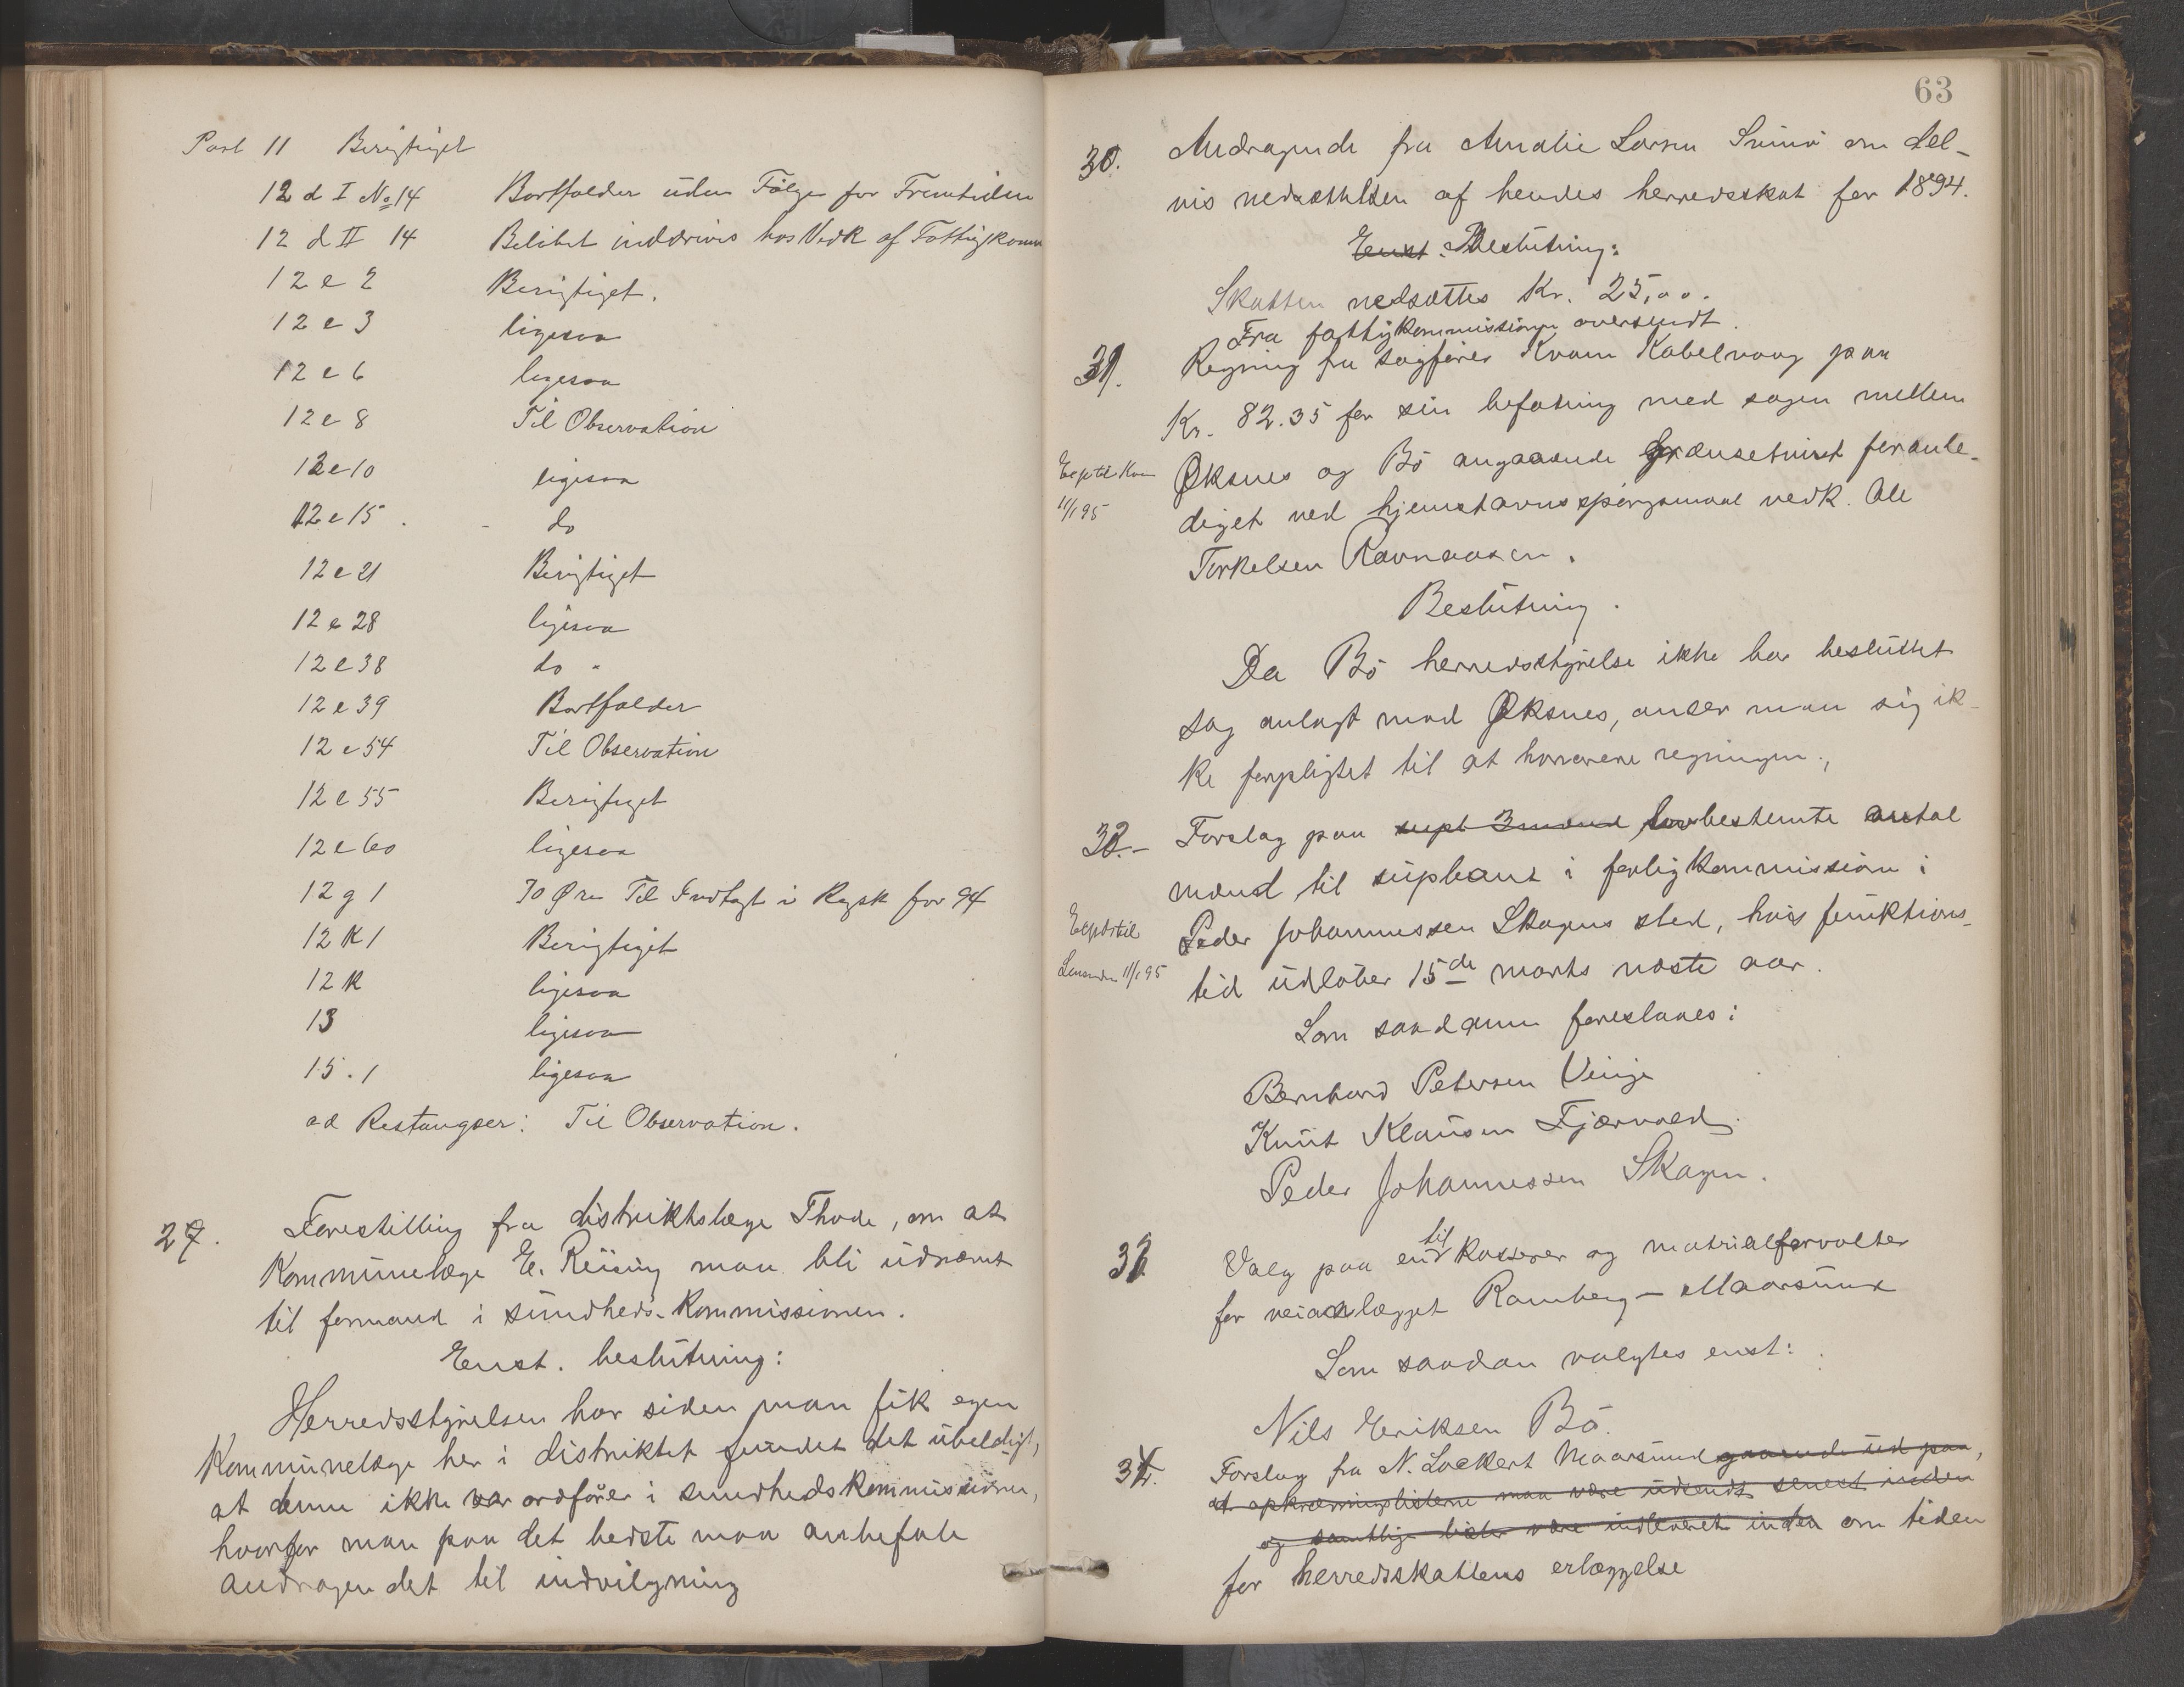 Post 11 Berigtiget
12 d I No 14 Bortfalder uden Følge for Fremtiden
12 d II 14 Beløbet inddrives hos Vedk af Fattigkomm
12 e 2 Berigtiget.
12 e 3 ligesaa
12 e 6 ligesaa
12 e 8 Til Observation
12 e 10 ligesaa
12 e 15. - do
12 e 21 Berigtiget
12 e 28 ligesaa
12 e 38 do
12 e 39 Bortfalder
12 e 54 Til Observation
12 e 55 Berigtiget
12 e 60 ligesaa
12 g 1 70 Øre Til Indtægt i Regsk for 94
12 K 1 Berigtiget
12 K ligesaa
13 ligesaa
15.1 ligesaa
ad Restangser: Til Observation.
27. Forestilling fra distriktslæge Thode, om at
Kommunelæge E. Reusing maa bli udnævnt
til formand i sundheds-Kommissionen.
Enst. beslutning:
Herredsstyrelsen har siden man fik egen
Kommunelæge her i distriktet fundet det uheldigt,
at denne ikke var ordfører i sundhedskommissionen,
hvorfor man paa det bedste maa anbefale
andragendet til indvilgning
63
30. Andragende fra Amalie Larsen om del-
vis nedsættelsen af hendes herredsskat for 1894.
Enst. Beslutning:
Skatten nedsættes Kr. 25,00.
Fra fattigkommissionen oversendt.
31. Regning fra sagfører Kvam Kabelvaag paa
Kr. 82.35 for sin befatning med sagen mellem
Øksnes og Bö angaaende grænsetvist foranle-
diget ved hjemstavnsspørgsmaal vedk. Ole
Torkelsen Ravnaasen.
11/1 95
Beslutning.
Da Bö herredsstyrelse ikke har besluttet
sag anlagt mod Øksnes, anser man sig ik-
ke forpligtet til at honorere regningen.,
32.- Forslag paa supl 3 mænd lovbestemte antal
mænd til supleant i forligkommission i
Peder Johannessen Skagens sted, hvis funktions-
tid udløber 15de marts næste aar.
Expd til
11/1 95
Som saadanne foreslaaes:
Bernhard Petersen Vinje
Knut Klausen Fjærvold.
Peder Johannessen Skagen.
33 Valg paa en til Kasserer og matrialforvalter
for veianlægget Ramberg - Maarsund
Som saadan valgtes enst:
Nils Eriksen Bö.
34. Forslag fra N. Lockert Maarsund gaaende ud paa,
at opkrævningslisterne maa være udsendt senest inden
og samtlige lister være indleveret inden om tiden
for herredsskattens erlæggelse